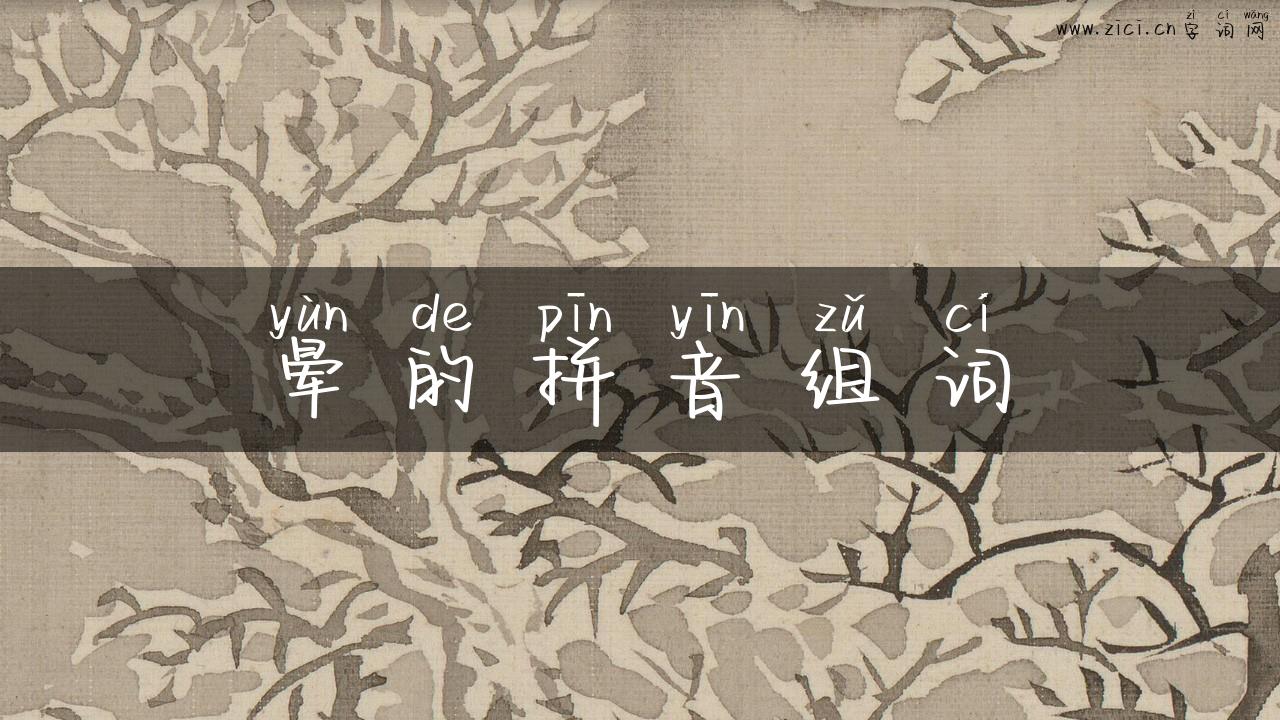 zì cí wǎng
www.zici.cn 字词网
yùn de pīn yīn zǔ cí
晕的拼音组词